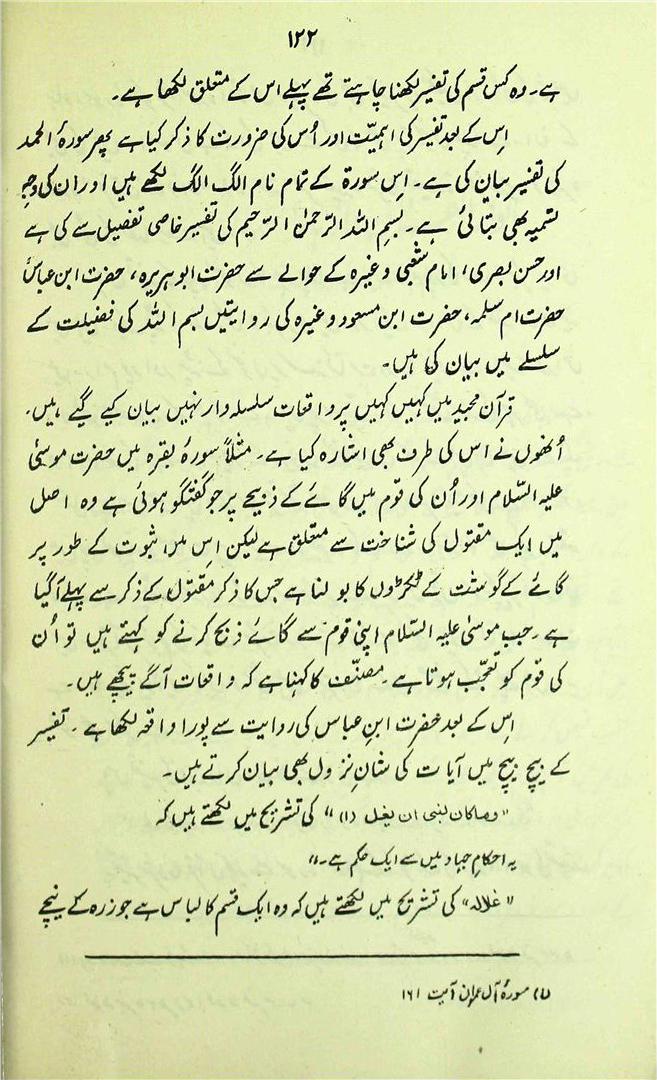 ۱۲۲
ہے۔ وہ کس قسم کی تفسیر لکھنا چاہتے تھے پہلے اس کے متعلق لکھا ہے۔
اِس کے بعد تفسیر کی اہمیّت اور اُس کی ضرورت کا ذکر کیا ہے پھر سورۂ الحمد
کی تفسیر بیان کی ہے۔ اِس سورۃ کے تمام نام الگ الگ لکھے ہیں اور ان کی وجہِ
تسمیہ بھی بتائی ہے۔ بسم اللہ الرّحمٰن الرّحیم کی تفسیر خاصی تفصیل سے کی ہے
اور حسن بصری، امام شعبی وغیرہ کے حوالے سے حضرت ابو ہریرہ، حضرت ابن عباسؓ
حضرت ام سلمہ، حضرت ابن مسعود وغیرہ کی روایتیں بسم اللہ کی فضیلت کے
سلسلے میں بیان کی ہیں۔
قرآن مجید میں کہیں کہیں پر واقعات سلسلہ وار نہیں بیان کیے گیے ہیں۔
اُنھوں نے اس کی طرف بھی اشارہ کیا ہے۔ مثلاً سورۂ بقرہ میں حضرت موسیٰ
علیہ السّلام اور اُن کی قوم میں گائے کے ذبیحے پر جو گفتگو ہوئی ہے وہ اصل
میں ایک مقتول کی شناخت سے متعلق ہے لیکن اس میں ثبوت کے طور پر
گائے کے گوشت کے ٹکڑوں کا بولنا ہے جس کا ذکر مقتول کے ذکر سے پہلے آگیا
ہے۔ جب موسیٰ علیہ السّلام اپنی قوم سے گائے ذبح کرنے کو کہتے ہیں تو اُن
کی قوم کو تعجّب ہوتا ہے۔ مصنّف کا کہنا ہے کہ واقعات آگے پیچھے ہیں۔
اِس کے بعد حضرت ابنِ عباس کی روایت سے پورا واقعہ لکھا ہے۔ تفسیر
کے بیچ بیچ میں آیات کی شانِ نزول بھی بیان کرتے ہیں۔
"وماکان لنبی ان یغل (۱)" کی تشریح میں لکھتے ہیں کہ
یہ احکامِ جہاد میں سے ایک حکم ہے۔"
"غلالہ" کی تشریح میں لکھتے ہیں کہ وہ ایک قسم کا لباس ہے جو زرہ کے نیچے
(۱) سورۂ آل عمران آیت ۱۶۱